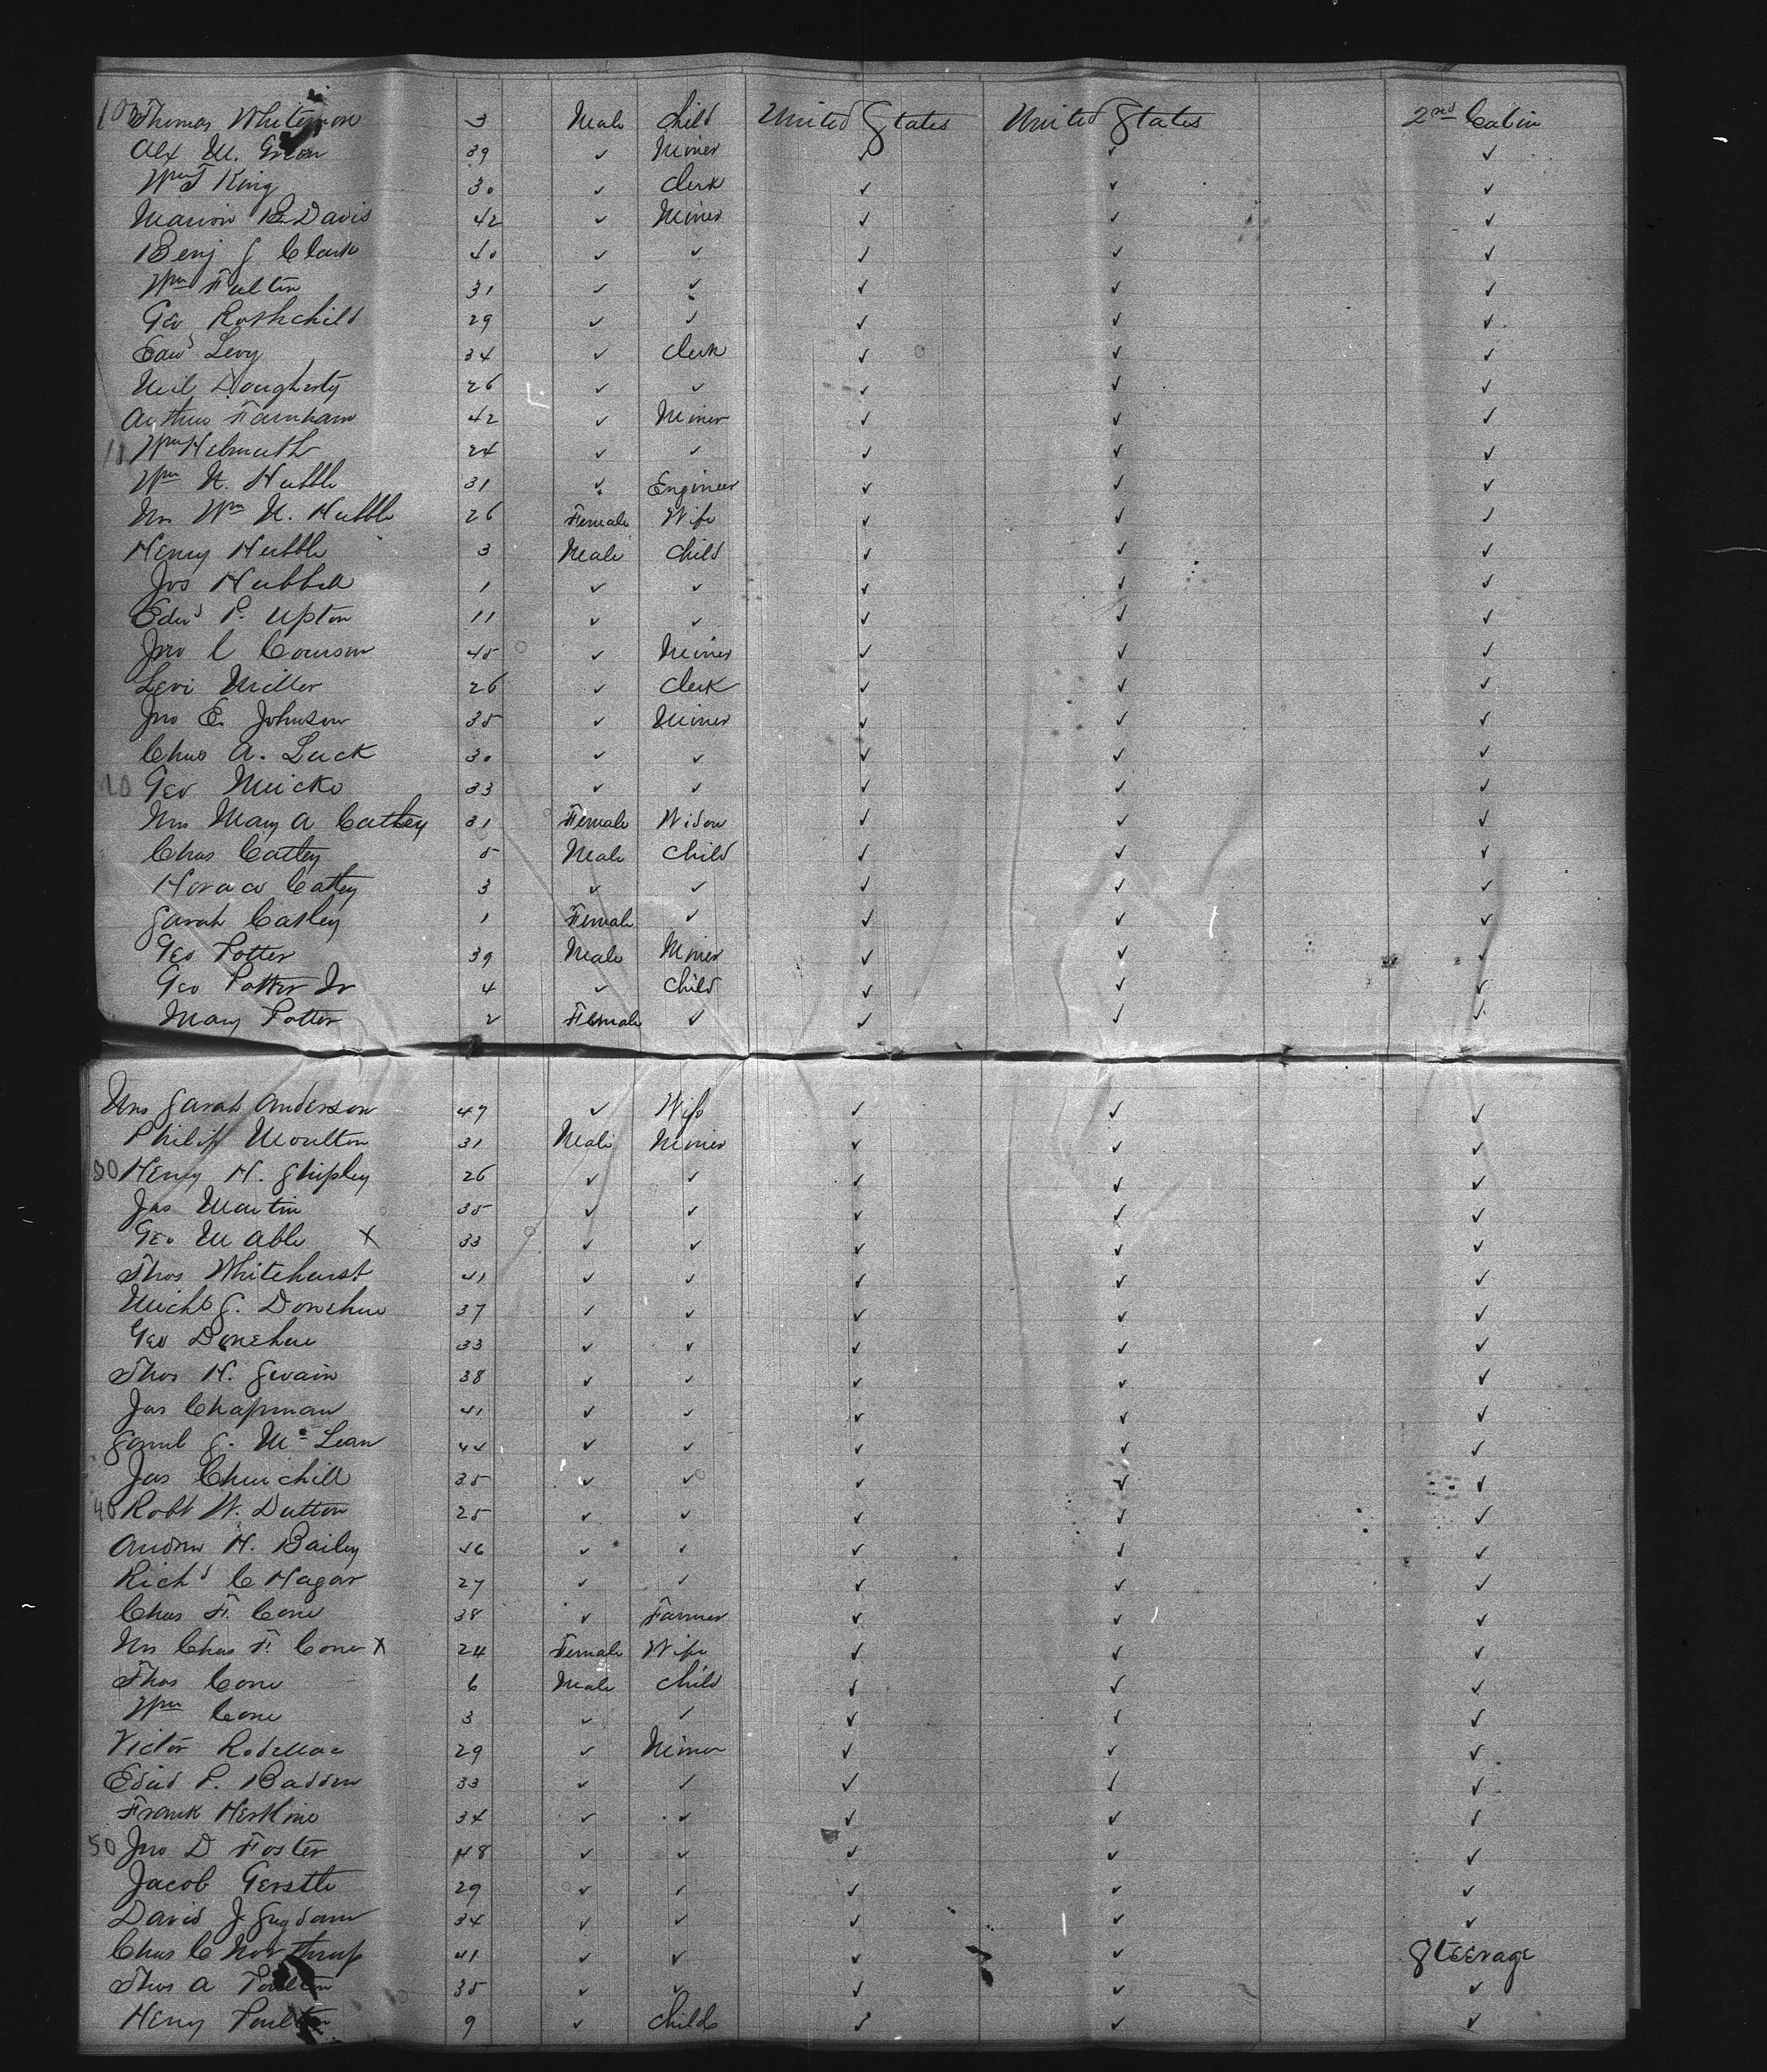 Thomas Whitemore 3 Male Child United States United States 2nd Cabin
Alex M. Green 39 ✓ Miner ✓ ✓ ✓
Wm T King 30 ✓ Clerk ✓ ✓ ✓
Marion B. Davis 42 ✓ Miner ✓ ✓ ✓
Benj J Clark 40 ✓ ✓ ✓ ✓ ✓
Wm Fulton 31 ✓ ✓ ✓ ✓ ✓
Geo Rothchild 29 ✓ ✓ ✓ ✓ ✓
Edwd Levy 34 ✓ Clerk ✓ ✓ ✓
Neil Dougherty 26 ✓ ✓ ✓ ✓ ✓
Arthur Farnham 42 ✓ Miner ✓ ✓ ✓
Wm Helmuth 24 ✓ ✓ ✓ ✓ ✓
Wm N. Hubble 31 ✓ Engineer ✓ ✓ ✓
Mrs Wm N. Hubble 26 Female Wife ✓ ✓ ✓
Henry Hubble 3 Male Child ✓ ✓ ✓
Jos Hubbell 1 ✓ ✓ ✓ ✓ ✓
Edwd P. Upton 11 ✓ ✓ ✓ ✓ ✓
Jno C Courson 45 ✓ Miner ✓ ✓ ✓
Levi Miller 26 ✓ Clerk ✓ ✓ ✓
Jno E. Johnson 35 ✓ Miner ✓ ✓ ✓
Chas A. Luck 30 ✓ ✓ ✓ ✓ ✓
20 Geo Micke 33 ✓ ✓ ✓ ✓ ✓
Mrs Mary A Cathey 31 Female Widow ✓ ✓ ✓
Chas Catley 5 Male Child ✓ ✓ ✓
Horace Catley 3 ✓ ✓ ✓ ✓ ✓
Sarah Catley 1 Female ✓ ✓ ✓ ✓
Geo Potter 39 Male Miner ✓ ✓ ✓
Geo Potter Jr 4 ✓ Child ✓ ✓ ✓
Mary Potter 2 Female ✓ ✓ ✓ ✓
Mrs Sarah Anderson 47 ✓ Wife ✓ ✓ ✓
Philip Moulton 31 Male Miner ✓ ✓ ✓
30 Henry H. Shipley 26 ✓ ✓ ✓ ✓ ✓
Jas Martin 35 ✓ ✓ ✓ ✓ ✓
Geo M Able X 33 ✓ ✓ ✓ ✓ ✓
Thos Whitehurst 41 ✓ ✓ ✓ ✓ ✓
Michl J. Donehue 37 ✓ ✓ ✓ ✓ ✓
Geo Donehue 33 ✓ ✓ ✓ ✓ ✓
Thos H. Swain 38 ✓ ✓ ✓ ✓ ✓
Jas Chapman 41 ✓ ✓ ✓ ✓ ✓
Saml J. McLean 44 ✓ ✓ ✓ ✓ ✓
Jas Churchill 35 ✓ ✓ ✓ ✓ ✓
40 Robt W. Dutton 25 ✓ ✓ ✓ ✓ ✓
Andrew H. Bailey 46 ✓ ✓ ✓ ✓ ✓
Richd C Hagar 27 ✓ ✓ ✓ ✓ ✓
Chas F. Cone 38 ✓ Farmer ✓ ✓ ✓
Mrs Chas F. Cone X 24 Female Wife ✓ ✓ ✓
Thos Cone 6 Male Child ✓ ✓ ✓
Wm Cone 3 ✓ ✓ ✓ ✓ ✓
Victor 29 ✓ Miner ✓ ✓ ✓
P. 33 ✓ ✓ ✓ ✓ ✓
Frank Herkine 34 ✓ ✓ ✓ ✓ ✓
50 Jno D Foster 48 ✓ ✓ ✓ ✓ ✓
Jacob Gerstle 29 ✓ ✓ ✓ ✓ ✓
David J 34 ✓ ✓ ✓ ✓ ✓
Chas C Northrup 41 ✓ ✓ ✓ ✓ Steerage
Thos A Poulton 35 ✓ ✓ ✓ ✓ ✓
Henry Poulton 9 ✓ Child ✓ ✓ ✓